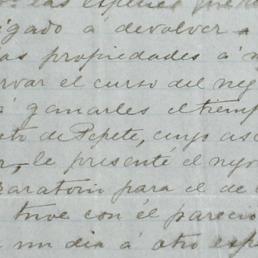 las
igado a devolver
as propiedades á
rvar el curso del neg
á ganarles el tiemp
to de Pepete, cuyo as
r, le presenté el nego
aratoria para el de
tuve con él parecio
un dia á otro esp